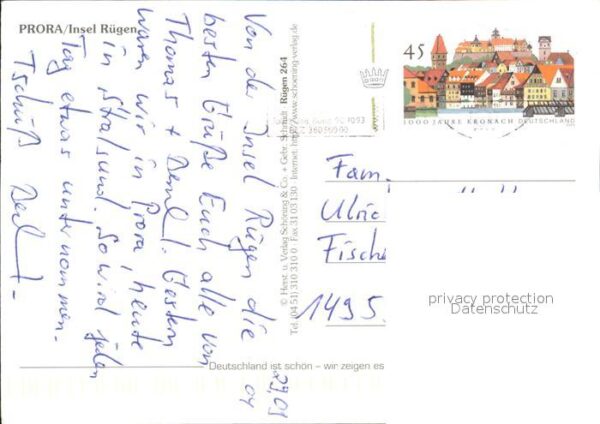 PRORA/Insel Rügen
Von der Insel Rügen die
besten Grüße Euch alle von
Thomas +
Gestern
waren wir in Prora, heute
in Stralsund. So wird jeden
Tag etwas unternommen.
Tschüß
29.09
04
© Herst. u. Verlag Schöning & Co. + Gebr. Schmidt Rügen 264
Tel. (04 51) 310 310 0 · Fax 31 03 130 · Internet: http://www.schoening-verlag.de
Deutschland ist schön – wir zeigen es
45
1000 JAHRE KRONACH DEUTSCHLAND
Fam.
Ulric
Fische
1495
privacy protection
Datenschutz